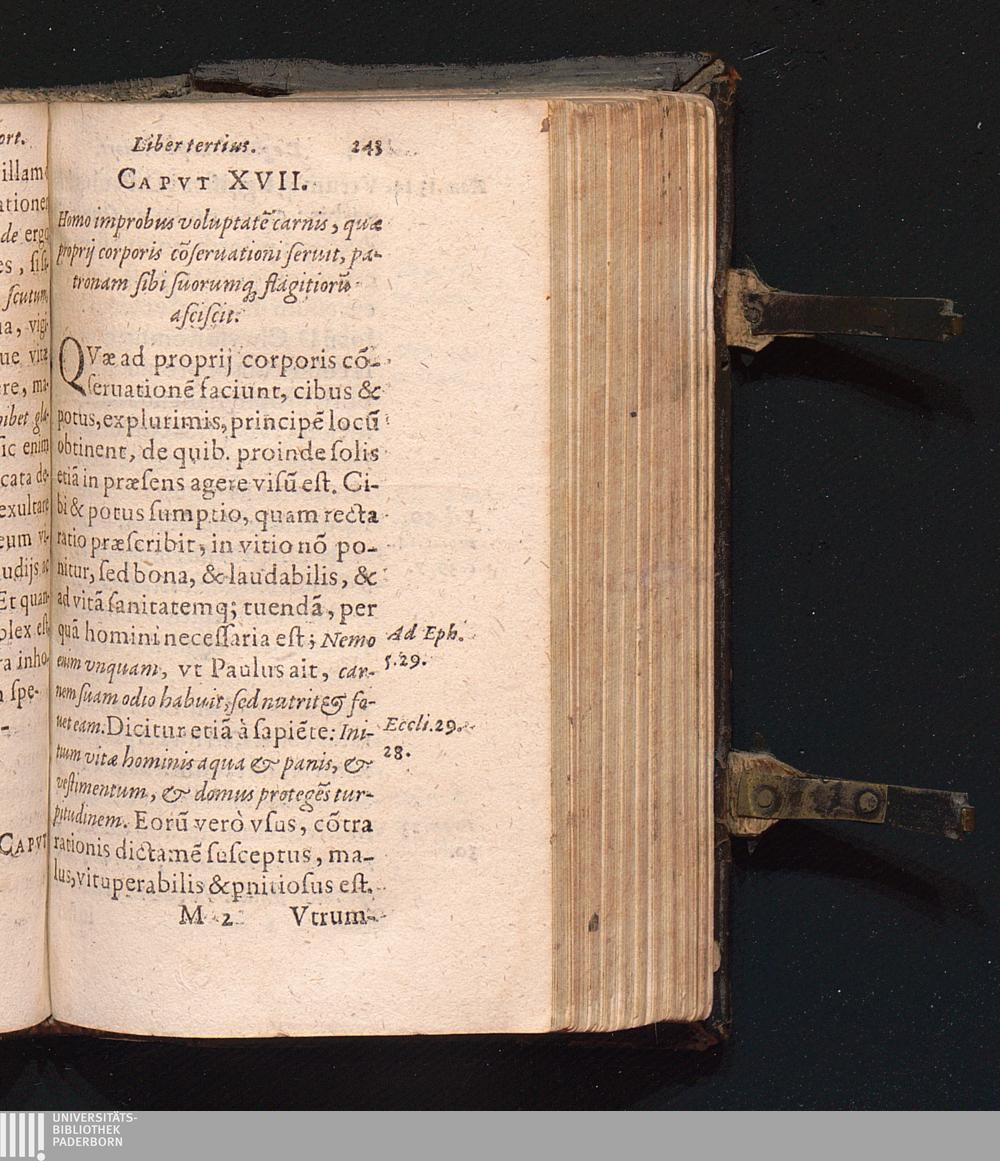 ort.
illam
atione
de ergo
es, ſiſt
ſcutum
ia, vigi
ue vitæ
ere, ma-
nibet gla-
ſic enim
cata de-
exultare
eum vi-
udijs ac
Et quan-
plex eſt
ra inho-
n ſpe-
-
CAPVT
Liber tertius. 243
CAPVT XVII.
Homo improbus voluptatē carnis, quæ
proprij corporis cōſeruationi ſeruit, pa-
tronam ſibi ſuorumq; flagitiorū
aſciſcit.
QVæ ad proprij corporis cō-
ſeruationē faciunt, cibus &
potus, ex plurimis, principē locū
obtinent, de quib. proinde ſolis
etiā in præſens agere viſū eſt. Ci-
bi & potus ſumptio, quam recta
ratio præſcribit, in vitio nō po-
nitur, ſed bona, & laudabilis, &
ad vitā ſanitatemq; tuendā, per
quā homini neceſſaria eſt; Nemo
enim vnquam, vt Paulus ait, car-
nem ſuam odio habuit, ſed nutrit & fo-
uet eam. Dicitur etiā à ſapiēte: Ini-
tium vitæ hominis aqua & panis, &
veſtimentum, & domus protegēs tur-
pitudinem. Eorū verò vſus, cōtra
rationis dictamē ſuſceptus, ma-
lus, vituperabilis & pnitioſus eſt.
M 2 Vtrum-
Ad Eph.
5.29.
Eccli.29.
28.
UNIVERSITÄTS-
BIBLIOTHEK
PADERBORN